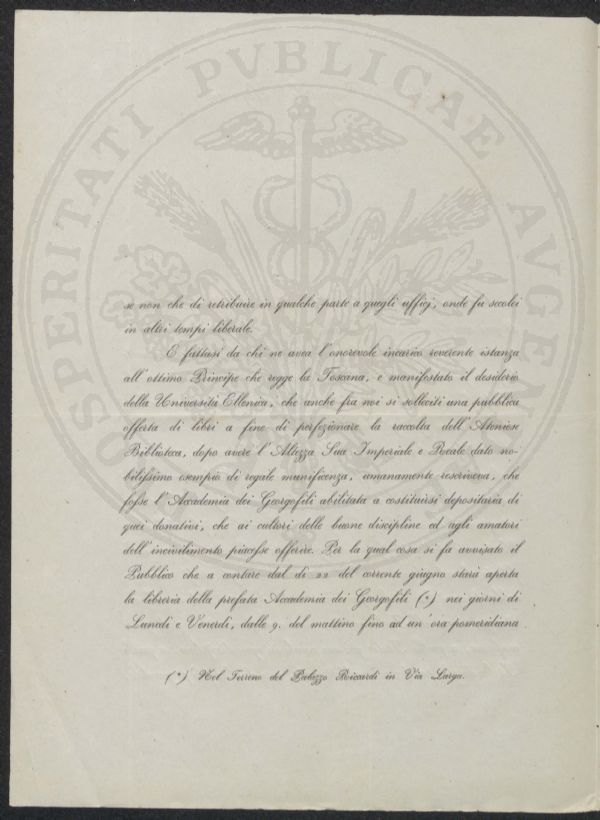 PROSPERITATI PVBLICAE AVGENDAE
se non che di retribuire in qualche parte a quegli uffizj, onde fu secolei
in altri tempi liberale.
E fattasi da chi ne avea l'onorevole incarico reverente istanza
all'ottimo Principe che regge la Toscana, e manifestato il desiderio
della Università Ellenica, che anche fra noi si solleciti una pubblica
offerta di libri a fine di perfezionare la raccolta dell'Ateniese
Biblioteca, dopo avere l'Altezza Sua Imperiale e Reale dato no-
bilissimo esempio di regale munificenza, umanamente rescriveva, che
fosse l'Accademia dei Georgofili abilitata a costituirsi depositaria di
quei donativi, che ai cultori delle buone discipline ed agli amatori
dell'incivilimento piacesse offerire. Per la qual cosa si fa avvisato il
Pubblico che a contare dal dì 22 del corrente giugno starà aperta
la libreria della prefata Accademia dei Georgofili (*) nei giorni di
Lunedì e Venerdì, dalle 9. del mattino fino ad un'ora pomeridiana
(*) Nel Terreno del Palazzo Riccardi in Via Larga.